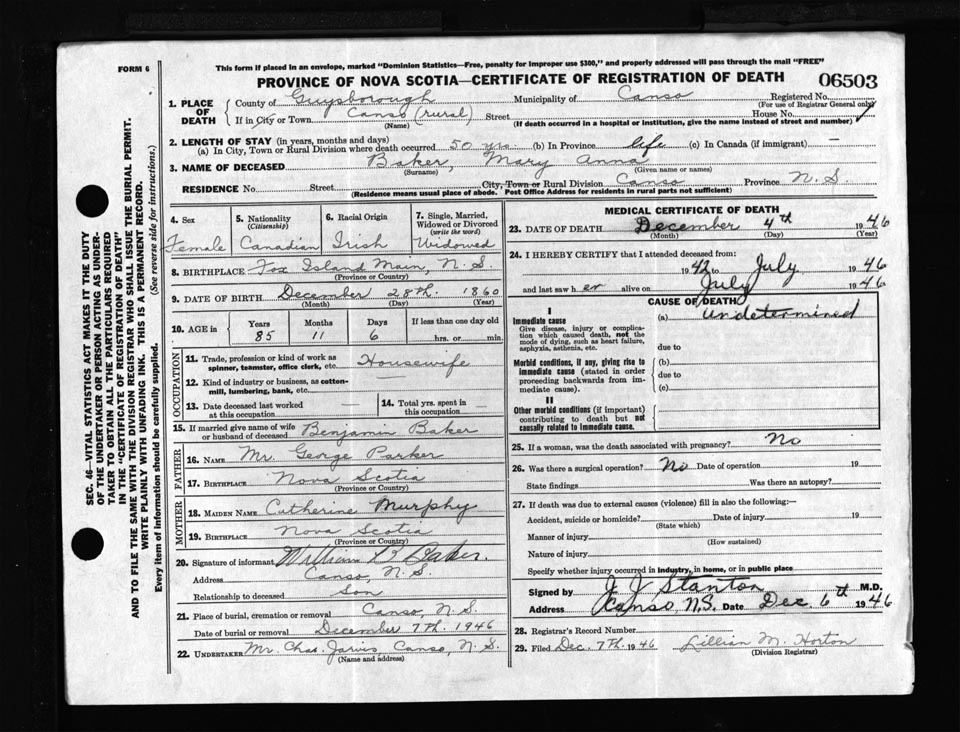 FORM 6
This form if placed in an envelope, marked "Dominion Statistics—Free, penalty for improper use $300," and properly addressed will pass through the mail "FREE"
PROVINCE OF NOVA SCOTIA—CERTIFICATE OF REGISTRATION OF DEATH 06503
1. PLACE OF DEATH
County of Guysborough Municipality of Canso Registered No.
(For use of Registrar General only)
If in City or Town Canso (rural) Street House No.
(Name) (If death occurred in a hospital or institution, give the name instead of street and number)
2. LENGTH OF STAY (in years, months and days)
(a) In City, Town or Rural Division where death occurred 50 yrs. (b) In Province life (c) In Canada (if immigrant) —
3. NAME OF DECEASED Baker, Mary Anna
(Surname) (Given name or names)
RESIDENCE No. Street City, Town or Rural Division Canso Province N.S.
(Residence means usual place of abode. Post Office Address for residents in rural parts not sufficient)
4. Sex Female
5. Nationality (Citizenship) Canadian
6. Racial Origin Irish
7. Single, Married, Widowed or Divorced (write the word) Widowed
8. BIRTHPLACE Fox Island Main, N.S.
(Province or Country)
9. DATE OF BIRTH December 28th. 1860
(Month) (Day) (Year)
10. AGE in Years Months Days If less than one day old
85 11 6 hrs. or min.
OCCUPATION
11. Trade, profession or kind of work as spinner, teamster, office clerk, etc. Housewife
12. Kind of industry or business, as cotton-mill, lumbering, bank, etc.
13. Date deceased last worked at this occupation
14. Total yrs. spent in this occupation
15. If married give name of wife or husband of deceased Benjamin Baker
FATHER
16. NAME Mr. George Parker
17. BIRTHPLACE Nova Scotia
(Province or Country)
MOTHER
18. MAIDEN NAME Catherine Murphy
19. BIRTHPLACE Nova Scotia
(Province or Country)
20. Signature of informant William Baker.
Address Canso, N.S.
Relationship to deceased Son
21. Place of burial, cremation or removal Canso, N.S.
Date of burial or removal December 7th. 1946
22. UNDERTAKER Mr. Chas. Jarvis, Canso, N.S.
(Name and address)
MEDICAL CERTIFICATE OF DEATH
23. DATE OF DEATH December 4th 1946
(Month) (Day) (Year)
24. I HEREBY CERTIFY that I attended deceased from:
1942 to July 1946
and last saw her alive on July 1946
CAUSE OF DEATH
I
Immediate cause (a) Undetermined
Give disease, injury or complication which caused death, not the mode of dying, such as heart failure, asphyxia, asthenia, etc.
due to
Morbid conditions, if any, giving rise to immediate cause (stated in order proceeding backwards from immediate cause).
(b)
due to
(c)
II
Other morbid conditions (if important) contributing to death but not causally related to immediate cause.
25. If a woman, was the death associated with pregnancy? No
26. Was there a surgical operation? No Date of operation 19
State findings Was there an autopsy?
27. If death was due to external causes (violence) fill in also the following:—
Accident, suicide or homicide? Date of injury 19
(State which)
Manner of injury
(How sustained)
Nature of injury
Specify whether injury occurred in industry, in home, or in public place
Signed by J J Stanton M.D.
Address Canso, N.S. Date Dec. 6th 1946
28. Registrar's Record Number
29. Filed Dec. 7th. 1946 Lillian M. Horton
(Division Registrar)
SEC. 46—VITAL STATISTICS ACT MAKES IT THE DUTY
OF THE UNDERTAKER OR PERSON ACTING AS UNDER-
TAKER TO OBTAIN ALL THE PARTICULARS REQUIRED
IN THE "CERTIFICATE OF REGISTRATION OF DEATH"
AND TO FILE THE SAME WITH THE DIVISION REGISTRAR WHO SHALL ISSUE THE BURIAL PERMIT.
WRITE PLAINLY WITH UNFADING INK. THIS IS A PERMANENT RECORD.
Every item of information should be carefully supplied. (See reverse side for instructions.)